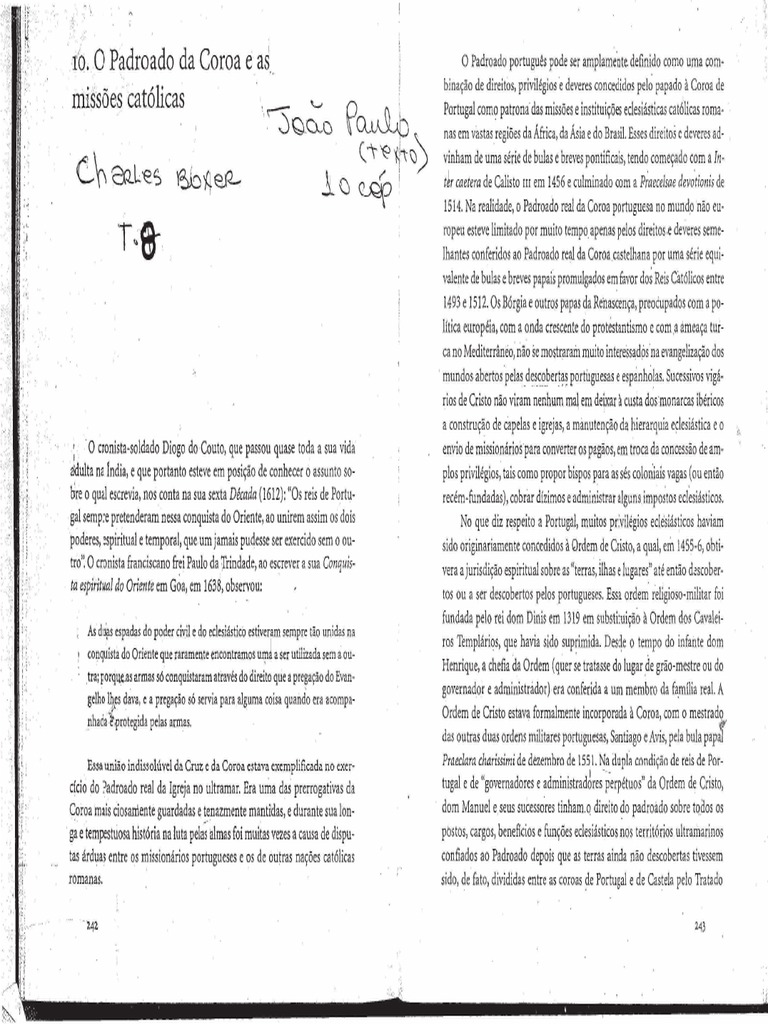 10. O Padroado da Coroa e as
missões católicas
João Paulo
(texto)
10 cóp
Charles Boxer
T. 8
O cronista-soldado Diogo do Couto, que passou quase toda a sua vida
adulta na Índia, e que portanto esteve em posição de conhecer o assunto so-
bre o qual escrevia, nos conta na sua sexta Década (1612): “Os reis de Portu-
gal sempre pretenderam nessa conquista do Oriente, ao unirem assim os dois
poderes, espiritual e temporal, que um jamais pudesse ser exercido sem o ou-
tro”. O cronista franciscano frei Paulo da Trindade, ao escrever a sua Conquis-
ta espiritual do Oriente em Goa, em 1638, observou:
As duas espadas do poder civil e do eclesiástico estiveram sempre tão unidas na
conquista do Oriente que raramente encontramos uma a ser utilizada sem a ou-
tra; porque as armas só conquistaram através do direito que a pregação do Evan-
gelho lhes dava, e a pregação só servia para alguma coisa quando era acompa-
nhada e protegida pelas armas.
Essa união indissolúvel da Cruz e da Coroa estava exemplificada no exer-
cício do Padroado real da Igreja no ultramar. Era uma das prerrogativas da
Coroa mais ciosamente guardadas e tenazmente mantidas, e durante sua lon-
ga e tempestuosa história na luta pelas almas foi muitas vezes a causa de dispu-
tas árduas entre os missionários portugueses e os de outras nações católicas
romanas.
242
O Padroado português pode ser amplamente definido como uma com-
binação de direitos, privilégios e deveres concedidos pelo papado à Coroa de
Portugal como patrona das missões e instituições eclesiásticas católicas roma-
nas em vastas regiões da África, da Ásia e do Brasil. Esses direitos e deveres ad-
vinham de uma série de bulas e breves pontificais, tendo começado com a In-
ter caetera de Calisto III em 1456 e culminado com a Praecelsae devotionis de
1514. Na realidade, o Padroado real da Coroa portuguesa no mundo não eu-
ropeu esteve limitado por muito tempo apenas pelos direitos e deveres seme-
lhantes conferidos ao Padroado real da Coroa castelhana por uma série equi-
valente de bulas e breves papais promulgados em favor dos Reis Católicos entre
1493 e 1512. Os Bórgia e outros papas da Renascença, preocupados com a po-
lítica européia, com a onda crescente do protestantismo e com a ameaça tur-
ca no Mediterrâneo, não se mostraram muito interessados na evangelização dos
mundos abertos pelas descobertas portuguesas e espanholas. Sucessivos vigá-
rios de Cristo não viram nenhum mal em deixar à custa dos monarcas ibéricos
a construção de capelas e igrejas, a manutenção da hierarquia eclesiástica e o
envio de missionários para converter os pagãos, em troca da concessão de am-
plos privilégios, tais como propor bispos para as sés coloniais vagas (ou então
recém-fundadas), cobrar dízimos e administrar alguns impostos eclesiásticos.
No que diz respeito a Portugal, muitos privilégios eclesiásticos haviam
sido originariamente concedidos à Ordem de Cristo, a qual, em 1455-6, obti-
vera a jurisdição espiritual sobre as “terras, ilhas e lugares” até então descober-
tos ou a ser descobertos pelos portugueses. Essa ordem religioso-militar foi
fundada pelo rei dom Dinis em 1319 em substituição à Ordem dos Cavalei-
ros Templários, que havia sido suprimida. Desde o tempo do infante dom
Henrique, a chefia da Ordem (quer se tratasse do lugar de grão-mestre ou do
governador e administrador) era conferida a um membro da família real. A
Ordem de Cristo estava formalmente incorporada à Coroa, com o mestrado
das outras duas ordens militares portuguesas, Santiago e Avis, pela bula papal
Praeclara charissimi de dezembro de 1551. Na dupla condição de reis de Por-
tugal e de “governadores e administradores perpétuos” da Ordem de Cristo,
dom Manuel e seus sucessores tinham o direito do padroado sobre todos os
postos, cargos, benefícios e funções eclesiásticos nos territórios ultramarinos
confiados ao Padroado depois que as terras ainda não descobertas tivessem
sido, de fato, divididas entre as coroas de Portugal e de Castela pelo Tratado
243